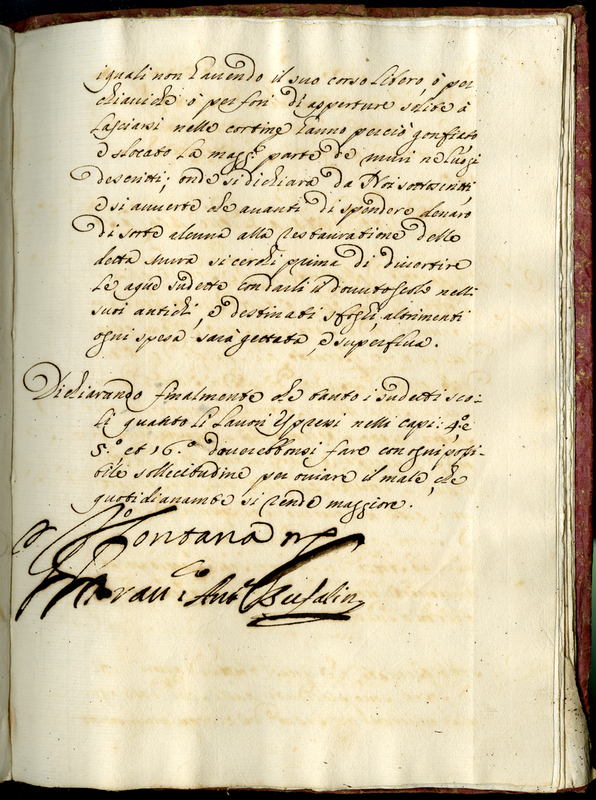 i quali non havendo il suo corso libero, ò per
chiaviche ò per fori di apperture solite à
lasciarsi nelle cortine hanno perciò gonfiato
e slocato la magg.r parte de muri ne luogi
descritti; onde si dichiara da Noi sottoscritti,
e si avverte che avanti di spendere denaro
di sorte alcuna alla restauratione delle
dette mura si cerchi prima di divertire
le aque sudette con darli il dovuto scolo nelli
suoi antichi, e destinati sfoghi, altrimenti
ogni spesa sarà gettata, e superflua.
Dichiarando finalmente che tanto i sudetti sco-
li quanto li lavori espressi nelli capi: 4.o e
5.o et 16.o doverebbonsi fare con ogni possi-
bile sollecitudine per oviare il male, che
quotidianamte si rende maggiore.
Fontana
Ant.o